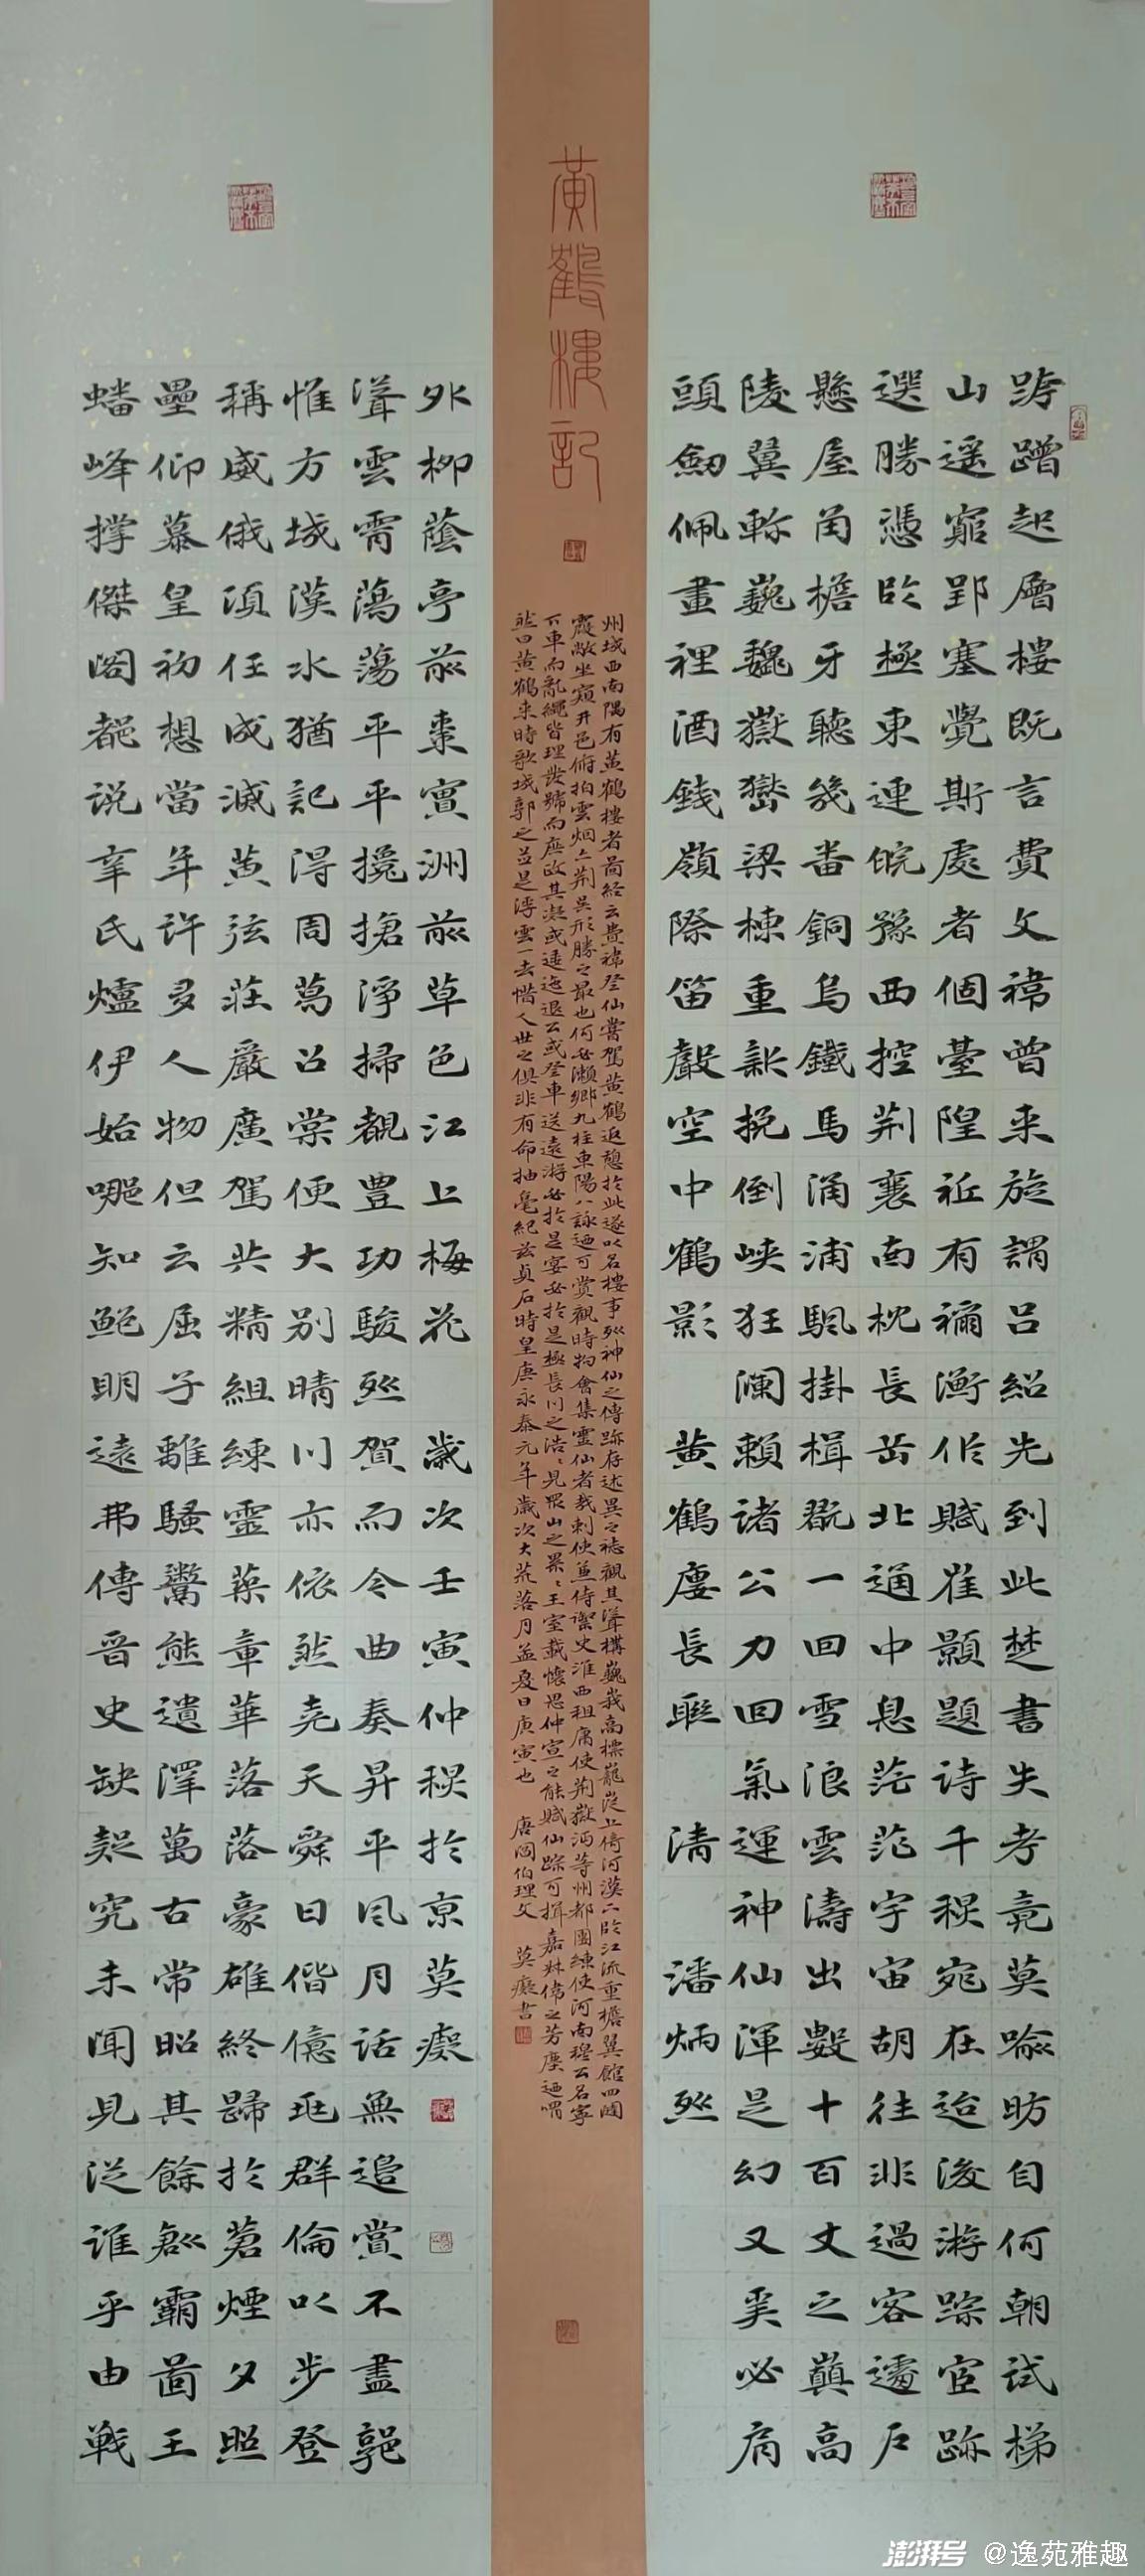 跨蹬起層樓既言費文禕曾來旋謂呂紹先到此楚書失考竟莫喻昉自何朝試梯
山遥窮郢塞覺斯處者個臺隍衹有禰衡作賦崔顥題詩千秋宛在迨後游踪宦跡
選勝憑臨極東連皖豫西控荆襄南枕長岳北通中息茫茫宇宙胡往非過客遽户
懸屋角檐牙聽幾番銅烏鐵馬涌浦颿掛楫翫一回雪浪雲濤出數十百丈之巔高
陵翼軫巍巍嶽嶺梁棟重新挽倒峽狂瀾賴諸公力回氣運神仙渾是幻又奚必肩
頭劍佩畫裡酒錢嶺際笛聲空中鶴影 黄鶴廔長聯 清 潘炳烈
黃鶴樓記
州城西南隅有黄鶴樓者啚經云費禕登仙嘗駕黄鶴返憩於此遂以名樓事列神仙之傳跡存述異之誌觀其聳構巍峩高標巃嵸上倚河漢下臨江流重檐翼館四闥
霞敞坐窺井邑俯拍雲烟亦荆吳形勝之最也何必瀨鄉九柱東陽八詠迺可賞觀時物會集靈仙者哉刺使兼侍禦史淮西租庸使荆嶽沔等州都團練使河南穆公名寧
下車而亂繩皆理發號而庶政其凝或逶迤退公或登車送遠游必於是宴必於是極長川之浩浩見眾山之累累王室載懷思仲宣之能賦仙踪可揖嘉叔偉之芳塵迺喟
然曰黄鶴來時歌城郭之並是浮雲一去惜人世之俱非有命抽毫紀茲貞石時皇唐永泰元年歲次大荒落月孟夏日庚寅也 唐閻伯理文 莫癡書
蟠峰撑傑閣都説辛氏爐伊始哪知鮑明遠弗傳晉史缺疑究未聞見從誰乎由戰
壘仰慕皇初想當年許多人物但云屈子離騷鬻熊遺澤萬古常昭其餘劔霸圖王
稱威俄頃任成滅黄弦莊嚴廣駕共精組練靈築章華落落豪雄終歸於蒼煙夕照
惟方城漢水猶記得周葛召棠便大別晴川亦依然堯天舜日偕億兆群倫以步登
聳雲霄蕩蕩平平攙搶淨掃覩豊功駿烈賀而今曲奏昇平風月話無邊賞不盡郭
外柳蔭亭前棗實洲前草色江上梅花 歲次壬寅仲秋於京莫癡
澎湃号 @逸苑雅趣